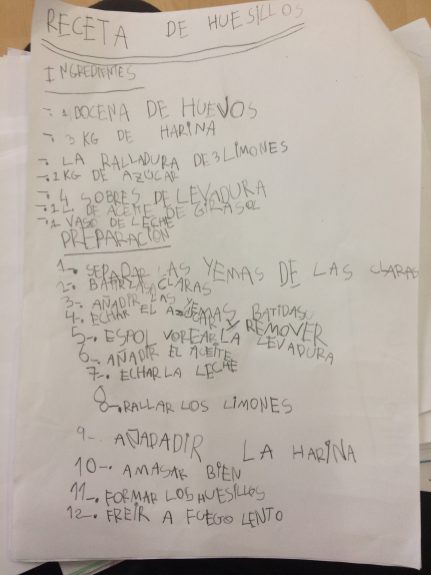 RECETA DE HUESILLOS
INGREDIENTES
-. 1 DOCENA DE HUEVOS
-. 3 KG DE HARINA
-. LA RALLADURA DE 3 LIMONES
-. 1 KG DE AZÚCAR
-. 4 SOBRES DE LEVADURA
-. 1 L DE ACEITE DE GIRASOL
-. 1 VASO DE LECHE
PREPARACIÓN
1-. SEPARAR LAS YEMAS DE LAS CLARAS
2-. BATIR LAS CLARAS
3-. AÑADIR LAS YEMAS BATIDAS
4-. ECHAR EL AZÚCAR Y REMOVER
5-. ESPOLVOREAR LA LEVADURA
6-. AÑADIR EL ACEITE
7-. ECHAR LA LECHE
8-. RALLAR LOS LIMONES
9-. AÑADADIR LA HARINA
10-. AMASAR BIEN
11-. FORMAR LOS HUESILLOS
12-. FREIR A FUEGO LENTO